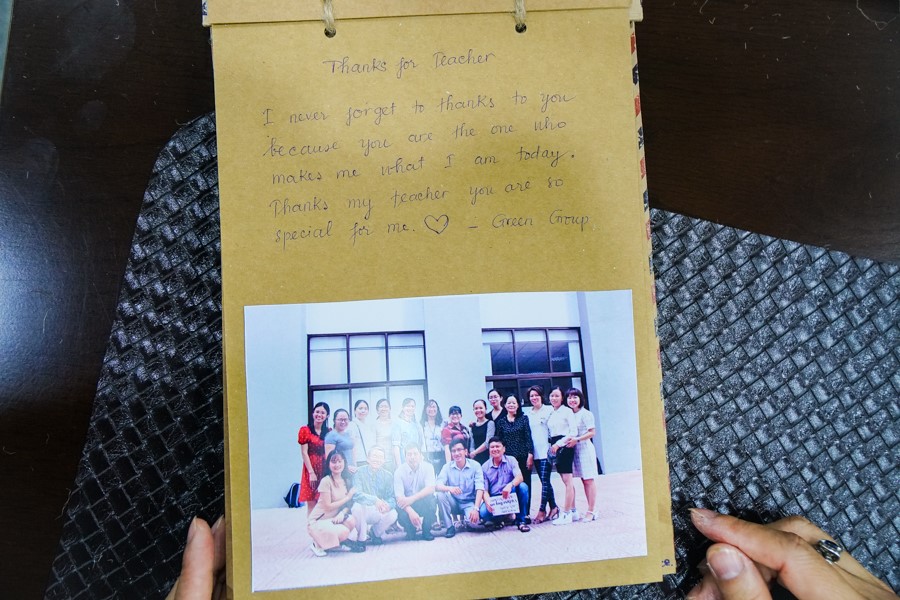 Thanks for Teacher
I never forget to thanks to you
because you are the one who
makes me what I am today.
Thanks my teacher you are so
special for me. ♡ – Green Group